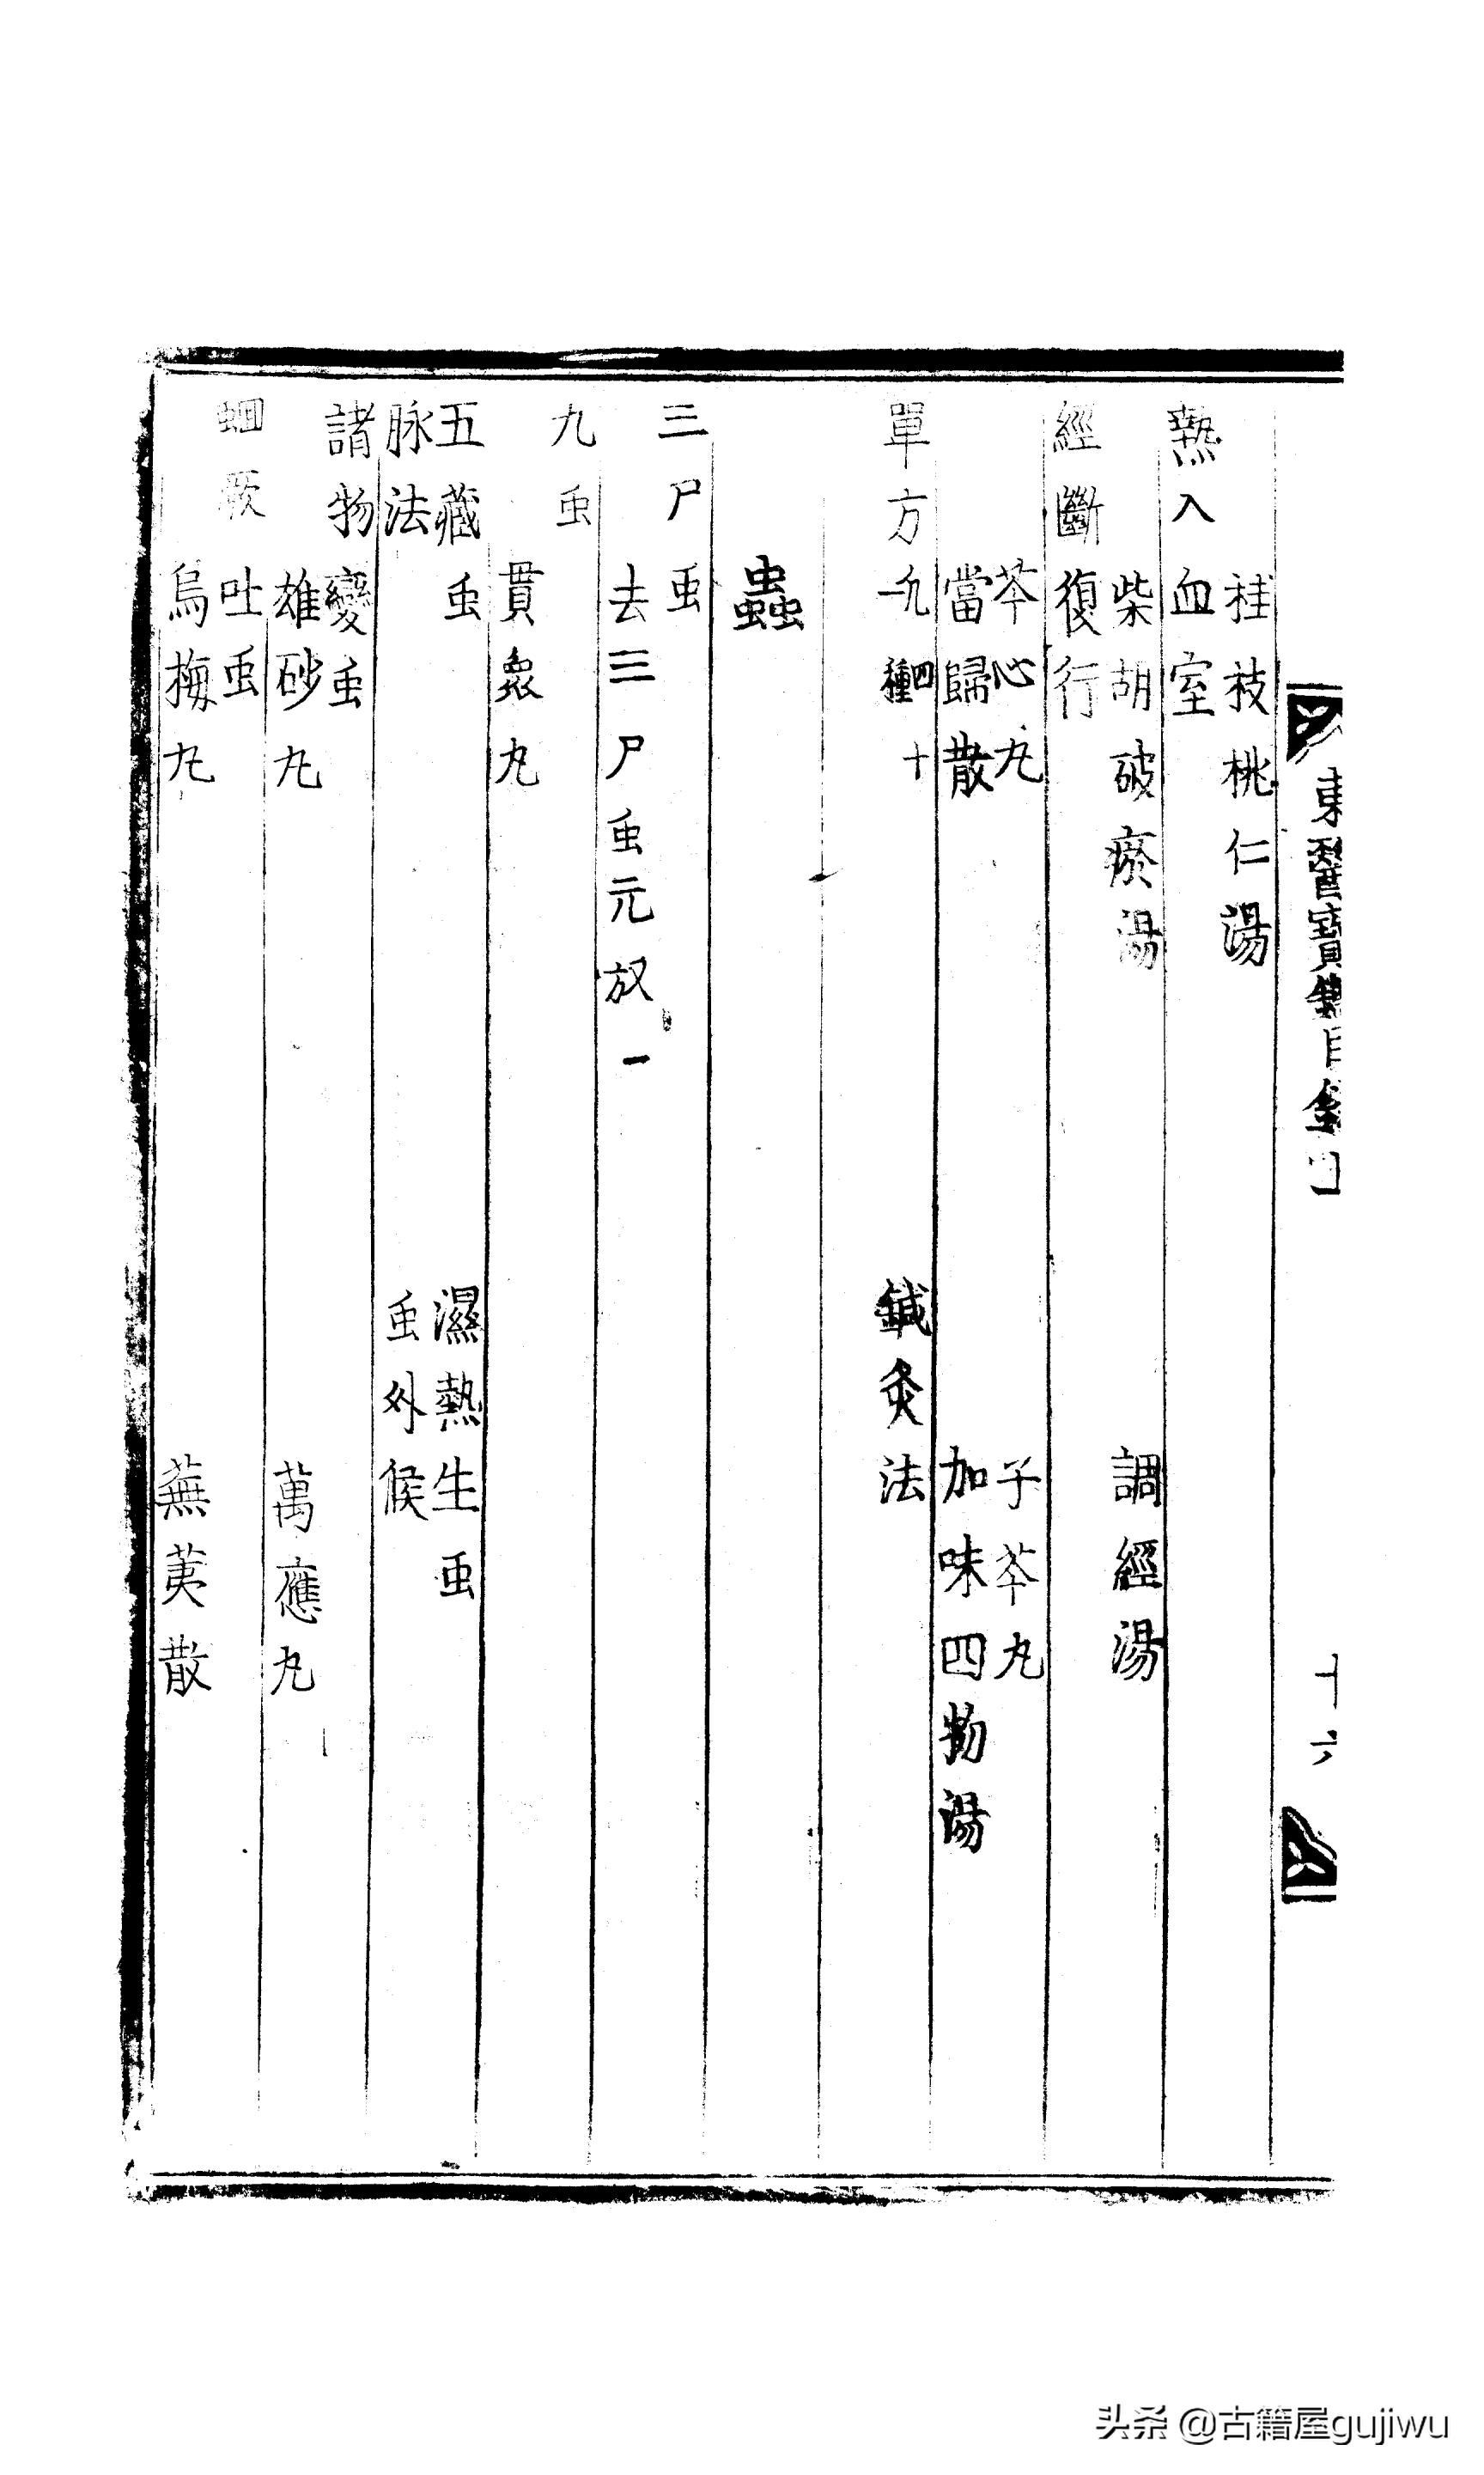 東醫寶鑑目錄
十六
桂枝桃仁湯
熱入血室
柴胡破瘀湯 調經湯
經斷復行
芩心丸 子芩丸
當歸散 加味四物湯
單方 凡四十一種 鍼灸法
蟲
三尸虫
去三尸虫元放一
九虫
貫衆丸
五藏虫 濕熱生虫
脉法 虫外候
諸物變虫
雄砂丸 萬應丸
蛔厥吐虫
烏梅丸 蕪荑散
头条 @古籍屋gujiwu